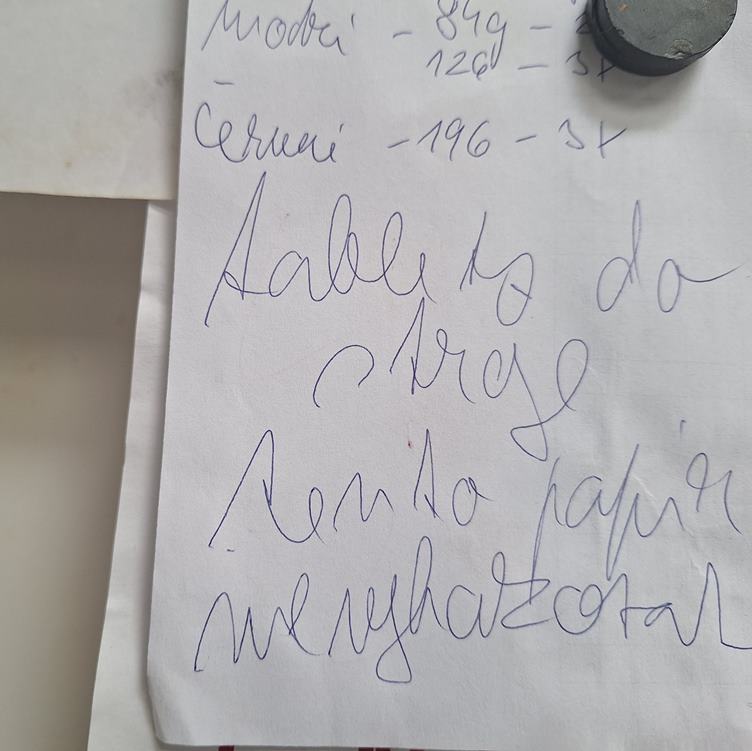 Modrá - 84g -
126 - 3x
Černá - 196 - 3x
tablety do
tento papír
nevyhazovat